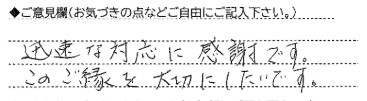 ◆ご意見欄(お気づきの点などご自由にご記入下さい。)
迅速な対応に感謝です。
このご縁を大切にしたいです。